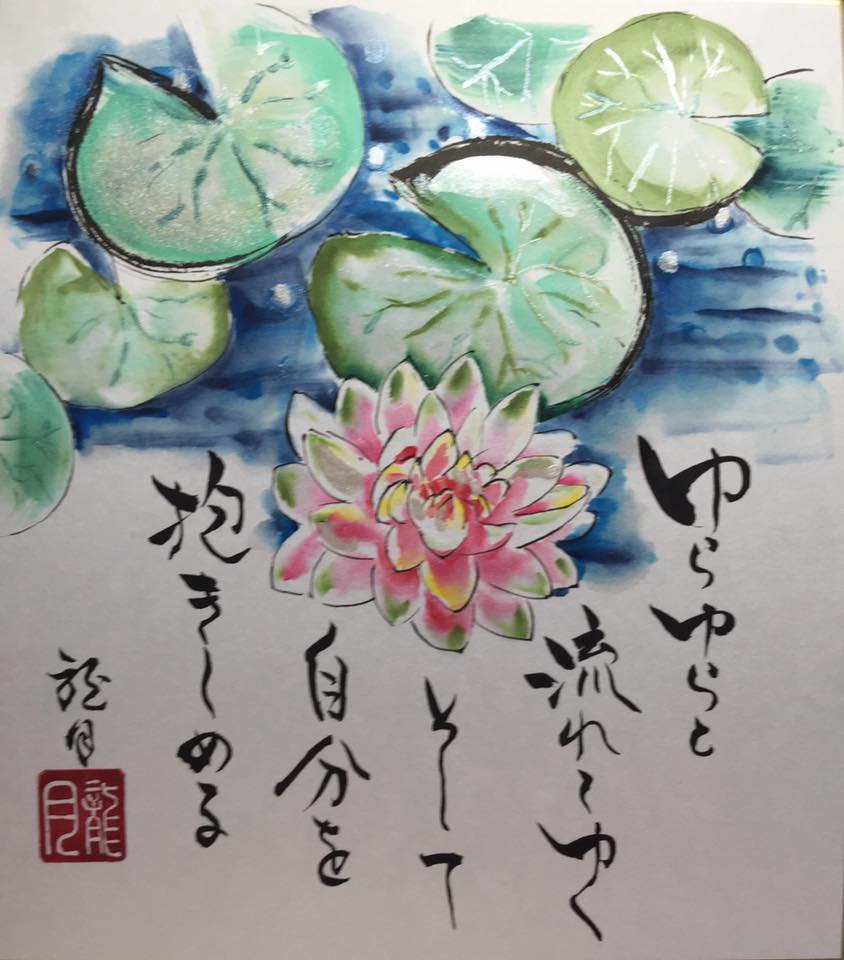 ゆらゆらと
流れてゆく
そして
自分を
抱きしめる
龍月
龍月